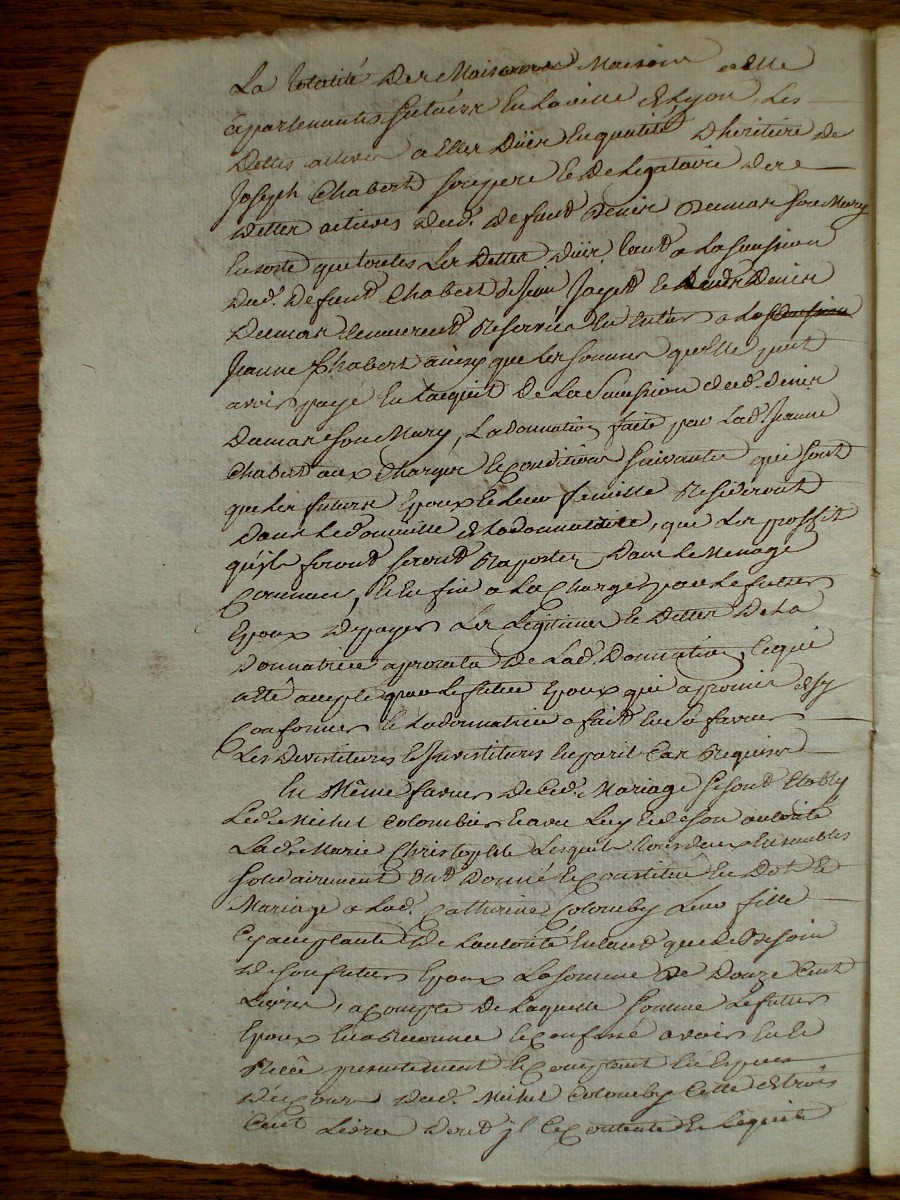 La totalité des Maisons Maison a elle
appartenantes scituées en la ville de Lyon, Les
Dettes actives a elle düer en qualité D'heritiere de
Joseph Chabert son pere et de Legataire de
Dettes actives dud. Defunt Denis Damar son Mary
Ensorte que toutes Les Dettes düer tant a La succession
Dud. Defunt Chabert de Jean Jayet et Denis
Damar demeurent Reservées en entier a La
Jeanne Chabert ainsy que les sommes qu'elle peut
avoir payé en l'acquit de La succession dud. denis
Damar son Mary, La donnation faite par Lad. Jeanne
Chabert aux Charges et conditions suivantes qui sont
que Les futurs Epoux et Leur famille Resideront
Dans Le domicille de La donnatrice, que Les proffit
qu'ils feront seront Raportés Dans Le Menage
Commun, et en fin a La Charge par Le futur
Epoux de payer Les Legitimes et Dettes De La
Donnatrice a prorata De Lad. Donnation, Ce qui
a été accepté par Le futur Epoux qui a promis de s'y
Conformer et La donnatrice a fait en sa faveur
Les Devestitures et Investitures en pareil Cas Requises
En Même faveur De Ced. Mariage se sont Etably
Led. Michel Colombier et avec Luy et de son autorité
Lad. Marie Christophle Lesquels tous deux Ensembles
solidairement ont Donné et Constitué En Dot de
Mariage a Lad. Catherine Colomby Leur fille
Cy acceptante De L'autorité En tant que de Besoin
De son futur Epoux La somme De Douze Cent
Livres, a compte de Laquelle somme Le futur
Epoux a Reconnu et confessé avoir Eu et
Receu presentement et Comptant En Especes
De Cours Dud. Michel Colomby Celle de trois
Cent Livres Dont il se Contente et L'equitte